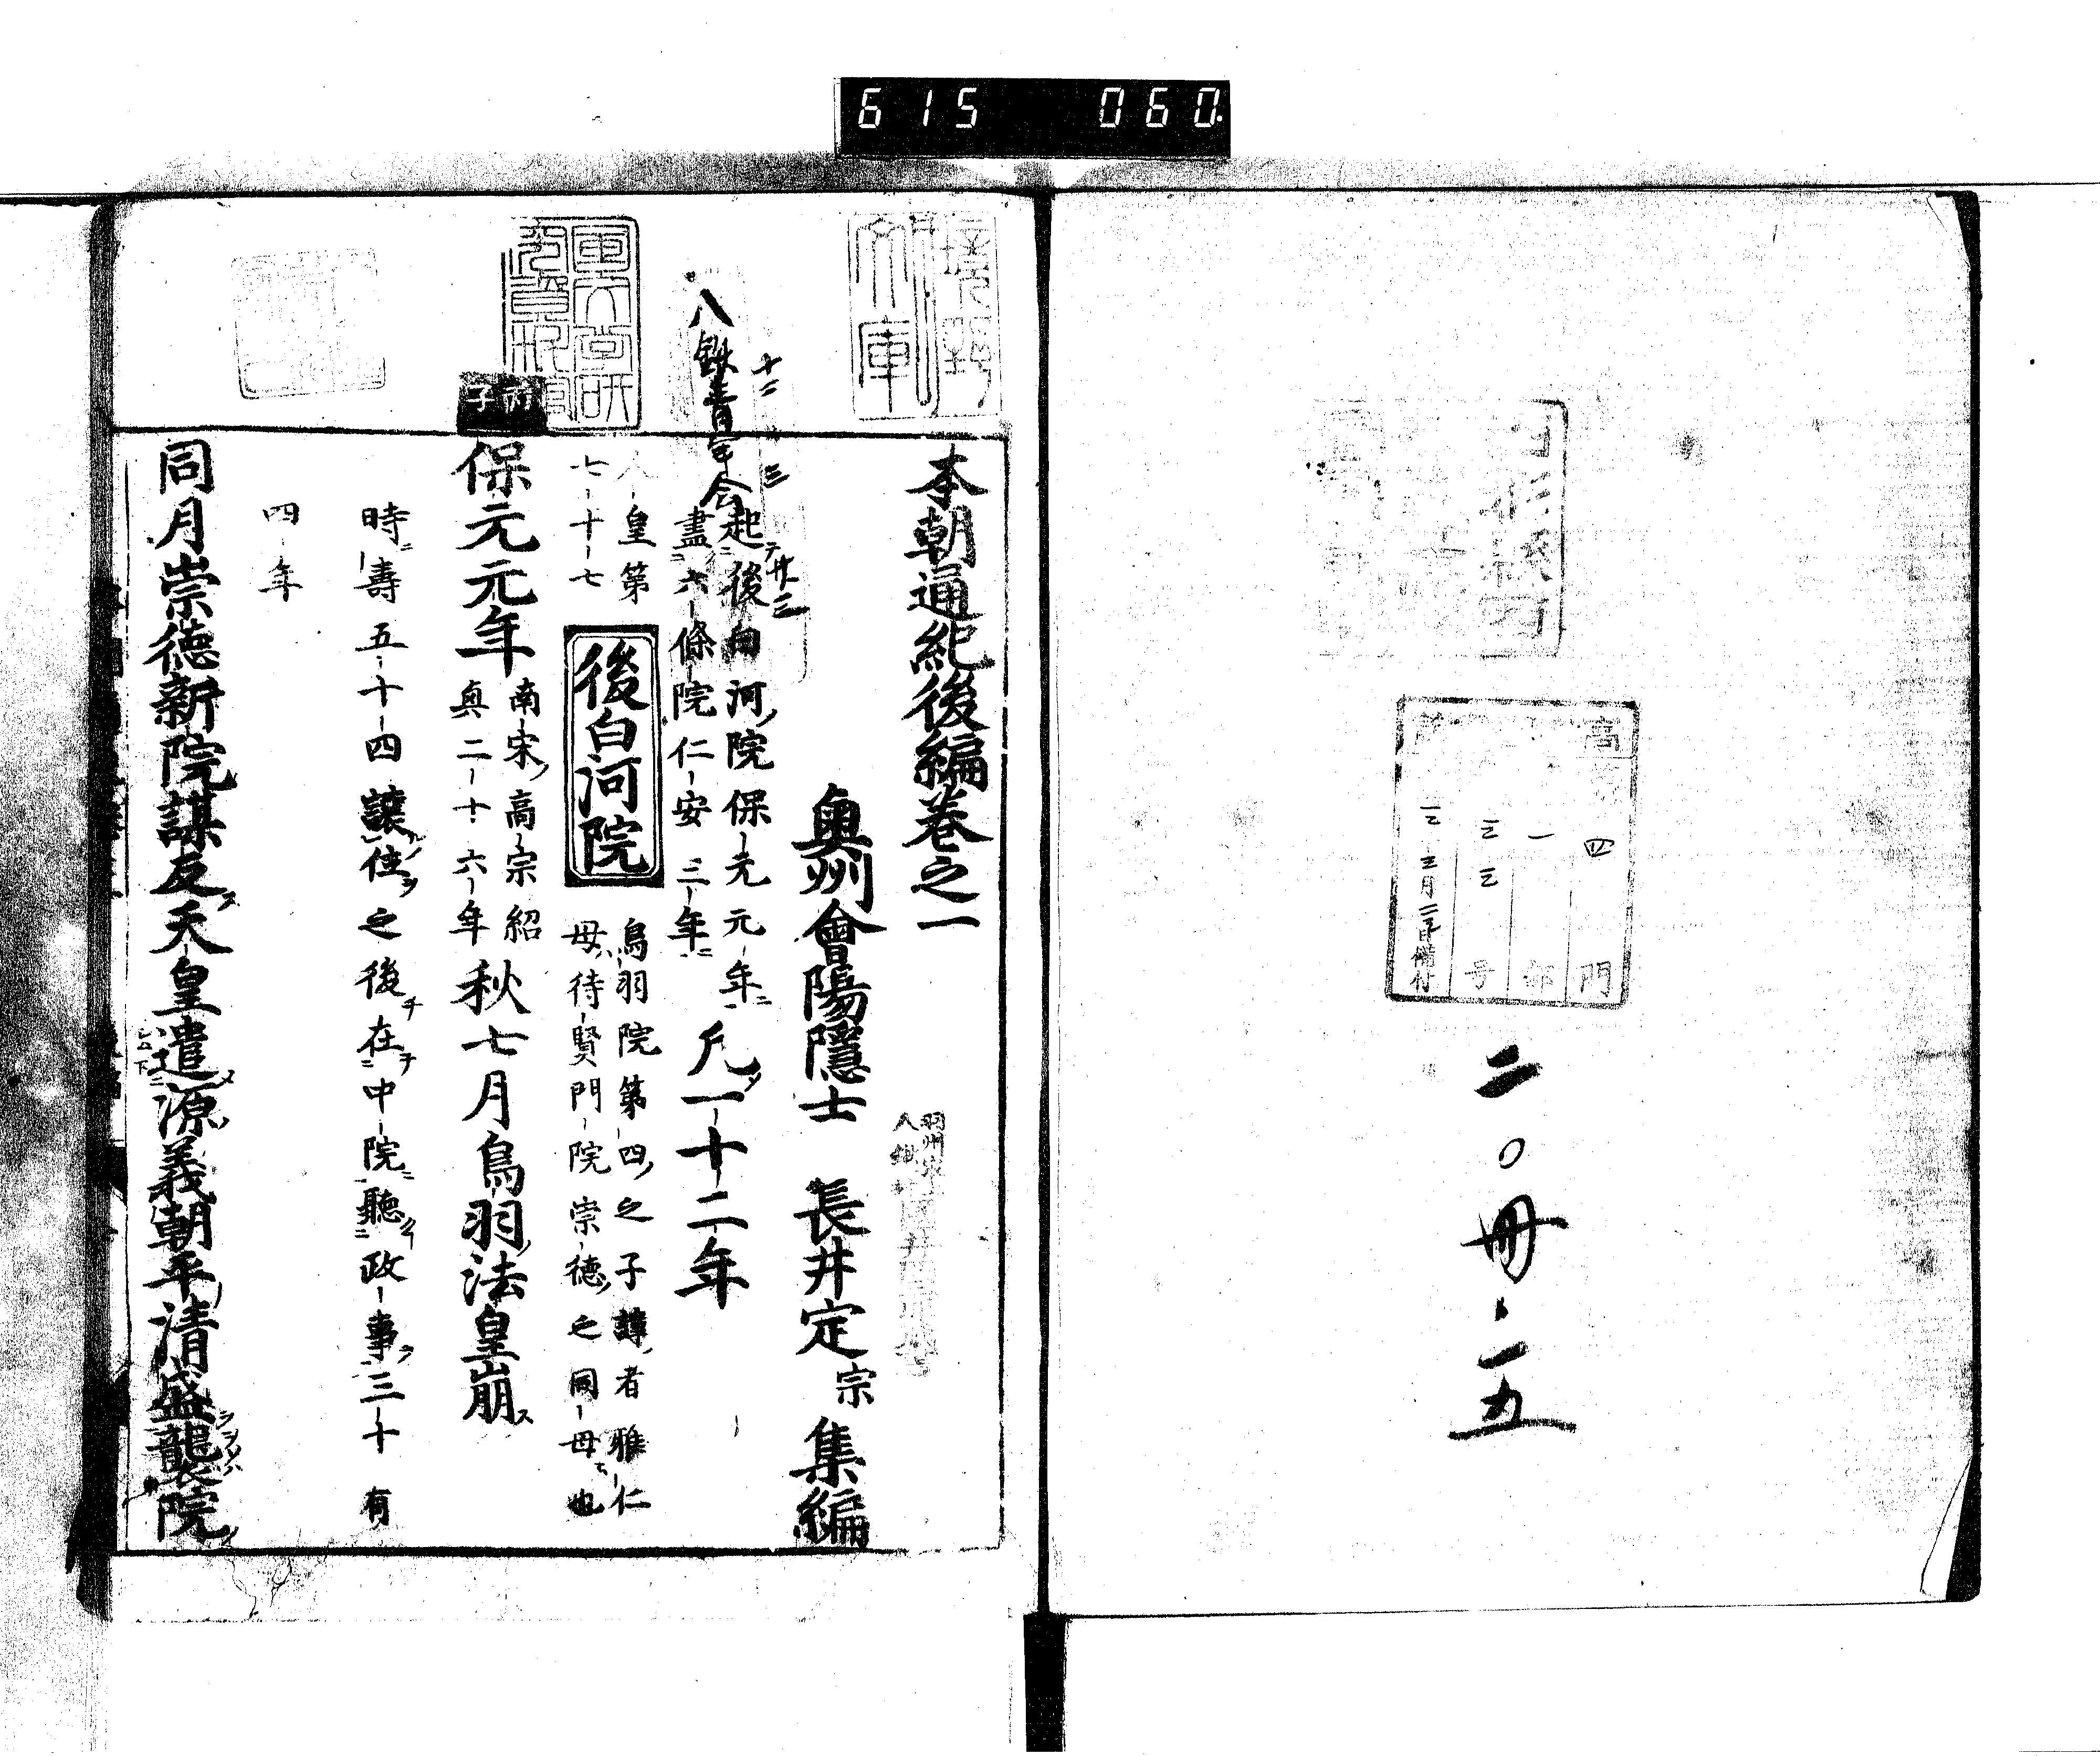 615 060
高
四 門
一 部
三三 号
三・三月二十日備付
二〇冊、一五
文庫
本朝通紀後編卷之一
奥州會陽隱士 長井定宗 集編
起後白河院保元元年
盡六條院仁安三年
凡一十二年
八鍬
十二
三
廿三
羽州
八鍬
人皇第
七十七
後白河院
鳥羽院第四之子諱者雅仁
母待賢門院崇德之同母也
丙子
保元元年
南宋高宗紹
興二十六年
秋七月鳥羽法皇崩ス
時壽五十四讓位之後在中院聽政事三十有
四年
同月崇德新院謀反ス天皇遣源義朝平清盛襲院